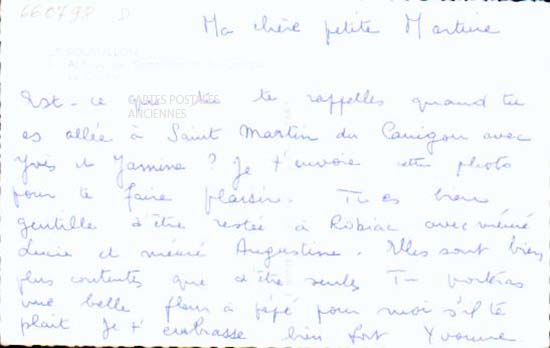 660798 D
Ma chère petite Martine
Est-ce que tu te rappelles quand tu
CARTES POSTALES
ANCIENNES
es allée à Saint Martin du Canigou avec
Yves et Yasmine ? Je t'envoie cette photo
pour te faire plaisir. Tu es bien
gentille d'être restée à Robiac avec mémé
Lucie et mémé Augustine. Elles sont bien
plus contentes que d'être seules. Tu porteras
une belle fleur à pépé pour moi s'il te
plait Je t'embrasse bien fort Yvonne